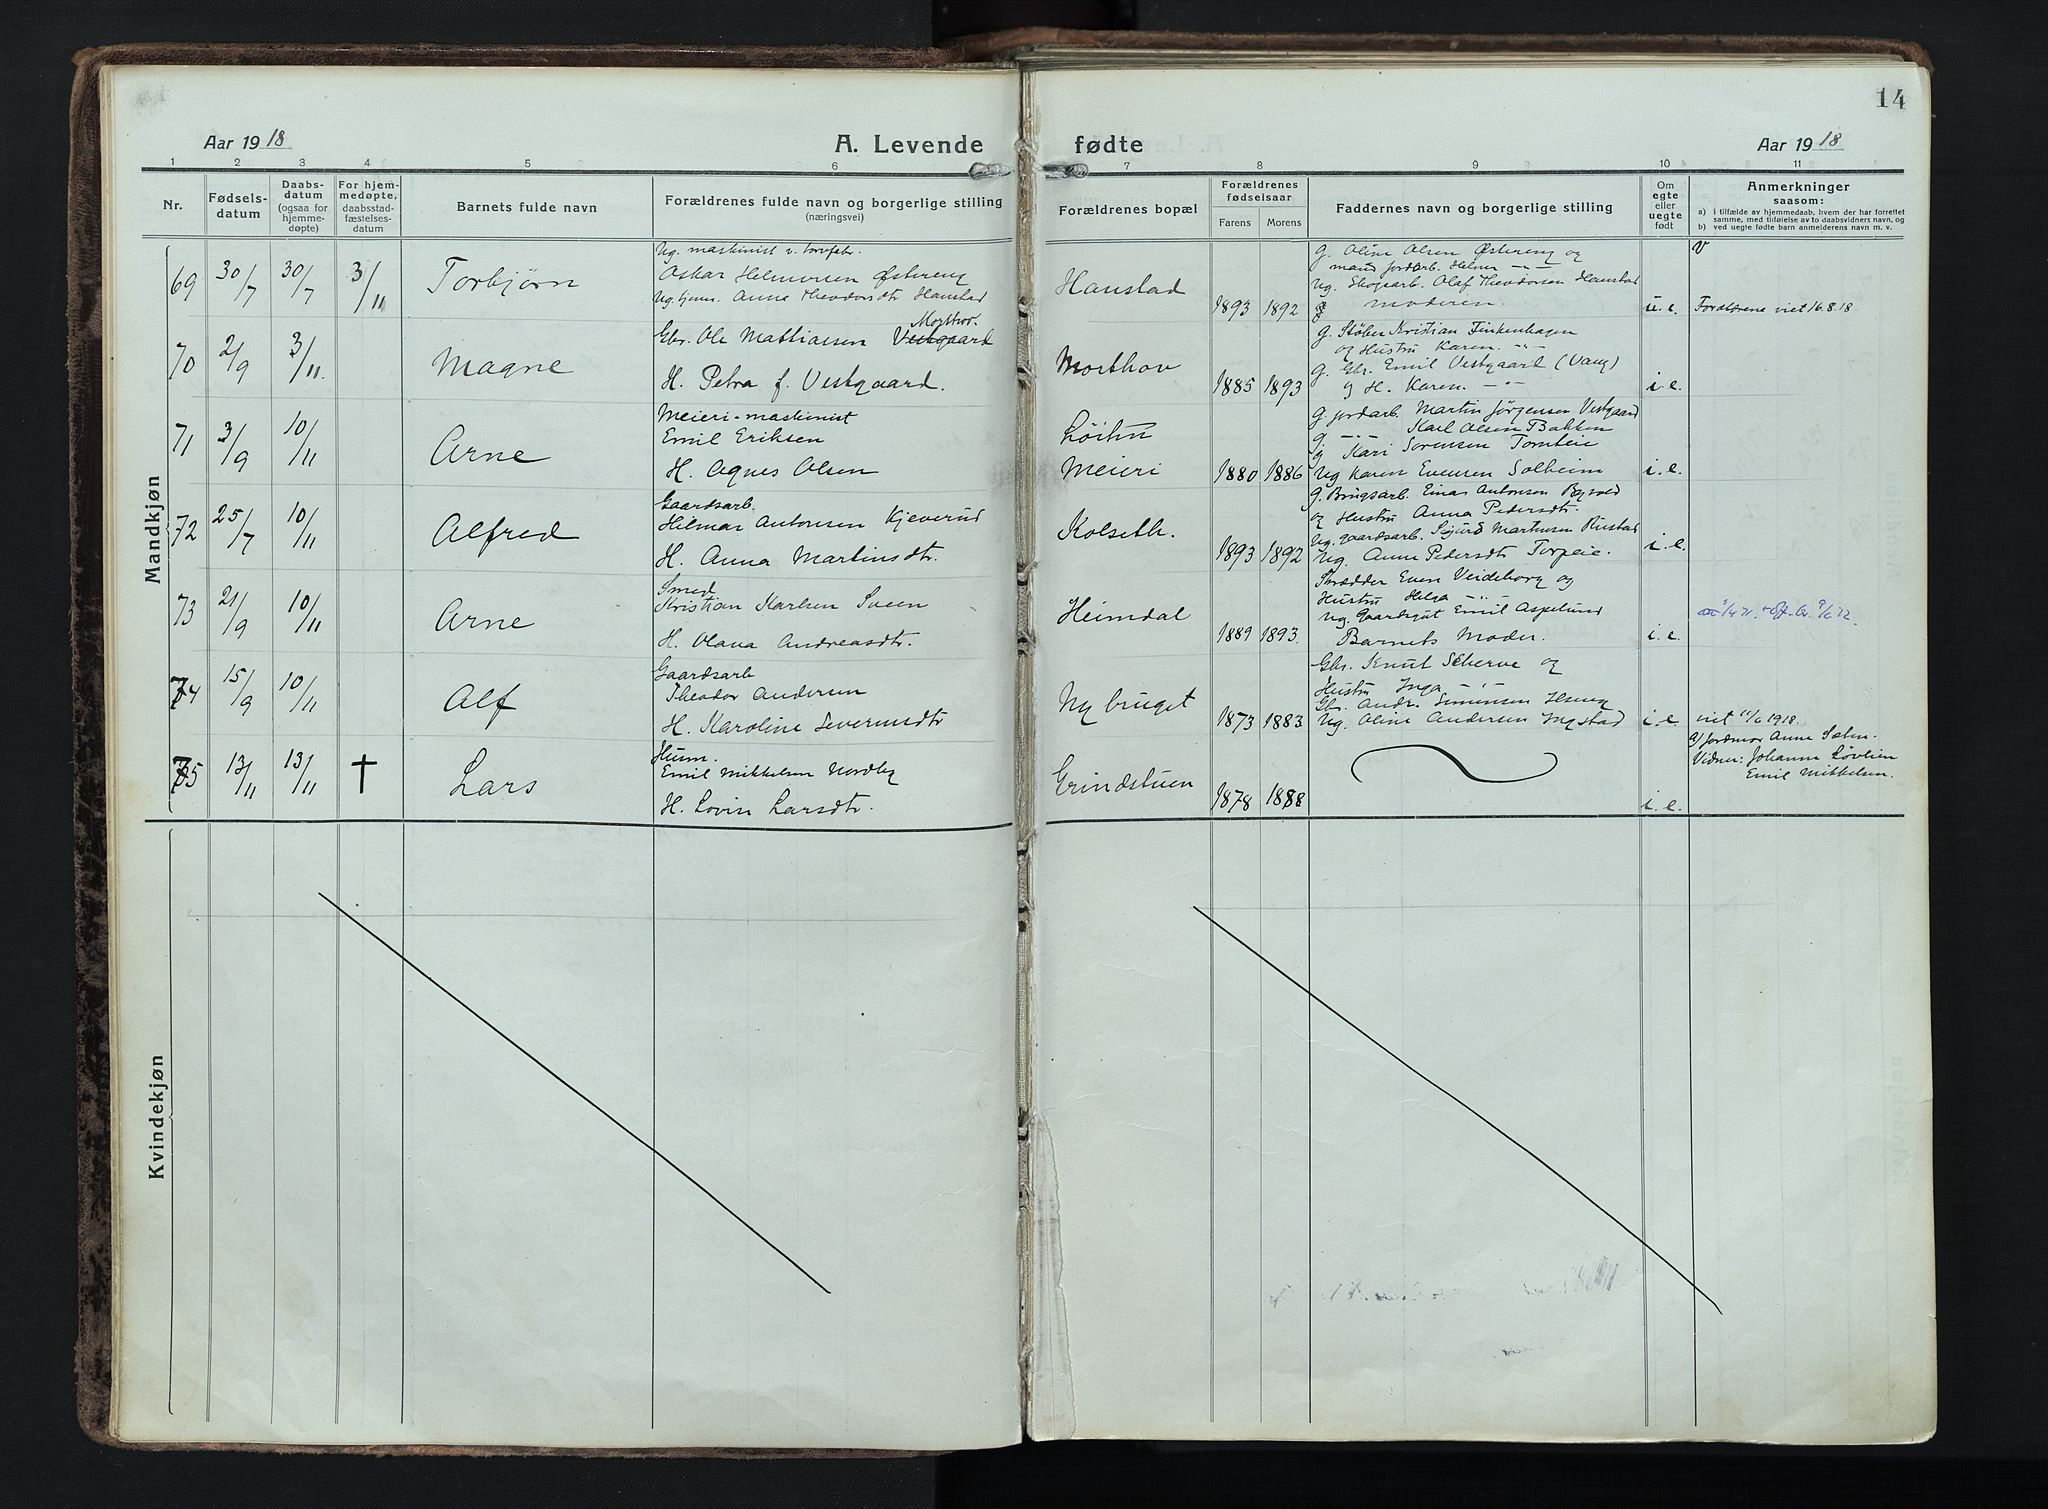 14
Aar 1918 A. Levende fødte Aar 1918
1 2 3 4 5 6 7 8 9 10 11
Nr.
Fødsels-
datum
Daabs-
datum
(ogsaa for
hjemme-
døpte)
For hjem-
medøpte,
daabsstad-
fæstelses-
datum
Barnets fulde navn
Forældrenes fulde navn og borgerlige stilling
(næringsvei)
Forældrenes bopæl
Forældrenes
fødselsaar
Farens Morens
Faddernes navn og borgerlige stilling
Om
egte
eller
uegte
født
Anmerkninger
saasom:
a) i tilfælde av hjemmedaab, hvem der har forrettet
samme, med tilføielse av to daabsvidners navn, og
b) ved uegte fødte barn anmelderens navn m. v.
Mandkjøn
69 30/7 30/7 3/11 Torbjørn
Ug. maskinist v. torvfabr.
Oskar Helmersen Østereng
Ug. tjen. Anna Theodorsdtr Hanstad
Hanstad 1893 1892
g. Oline Olsen Østereng og
mand jordarb. Helmer -"-
Ug. Skogsarb. Olaf Theodorsen Hanstad
og moderen.
u. e.
V
Forældrene viet 16.8.18.
70 2/9 3/11. Magne
Morthov.
Gbr. Ole Mathiassen Vestgaard
H. Petra f. Vestgaard.
Morthov 1885 1893
g. Støber Kristian Finkenhagen
og Hustru Karen -"-
g. Gbr. Emil Vestgaard (Vang)
og H. Karen. -"-
i. e.
71 3/9 10/11 Arne
Meieri-maskinist
Emil Eriksen
H. Agnes Olsen
Løiten
Meieri 1880 1886
g. jordarb. Martin Jørgensen Vestgaard
g. -"- Karl Olsen Bakken
g. Kari Sorensen Torpeie
Ug Karen Evensen Solheim
i. e.
72 25/7 10/11 Alfred
Gaardsarb.
Hilmar Antonsen Kjeverud
H. Anna Martinsdtr.
Kolseth. 1893 1892
g. Brugsarb. Einar Antonsen Bøvold
og Hustru Anna Pedersdtr.
Ug. gaardsarb. Sigurd Martinsen Rustad
Ug. Anne Pedersdtr Torpeie.
i. e.
73 21/9 10/11 Arne
Smed
Kristian Karlsen Sveen
H. Olava Andreasdtr.
Heimdal 1889 1893.
Skrædder Even Veideborg og
Hustru Helga -"-
Ug. Gaardsgut Emil Aspelund
Barnets Moder.
i. e.
74 15/9 10/11 Alf
Gaardsarb
Theodor Andersen
H. Karoline Severinsdtr
Nybruget 1873 1883.
Gbr. Knut Scherve og
Hustru Inga -"-
Gbr. Andr. Simensen Hseng
Ug. Oline Andersen Ingstad
i. e
viet 11/6 1918.
75 13/11 13/11 † Lars
Husm.
Emil Mikkelsen Nordby
H. Lovise Larsdtr.
Grindstuen 1878 1888
i. e.
a/ Jordmor Anna Sæten.
Vidner: Johanne Løvlien
Emil Mikkelsen.
Kvindekjøn